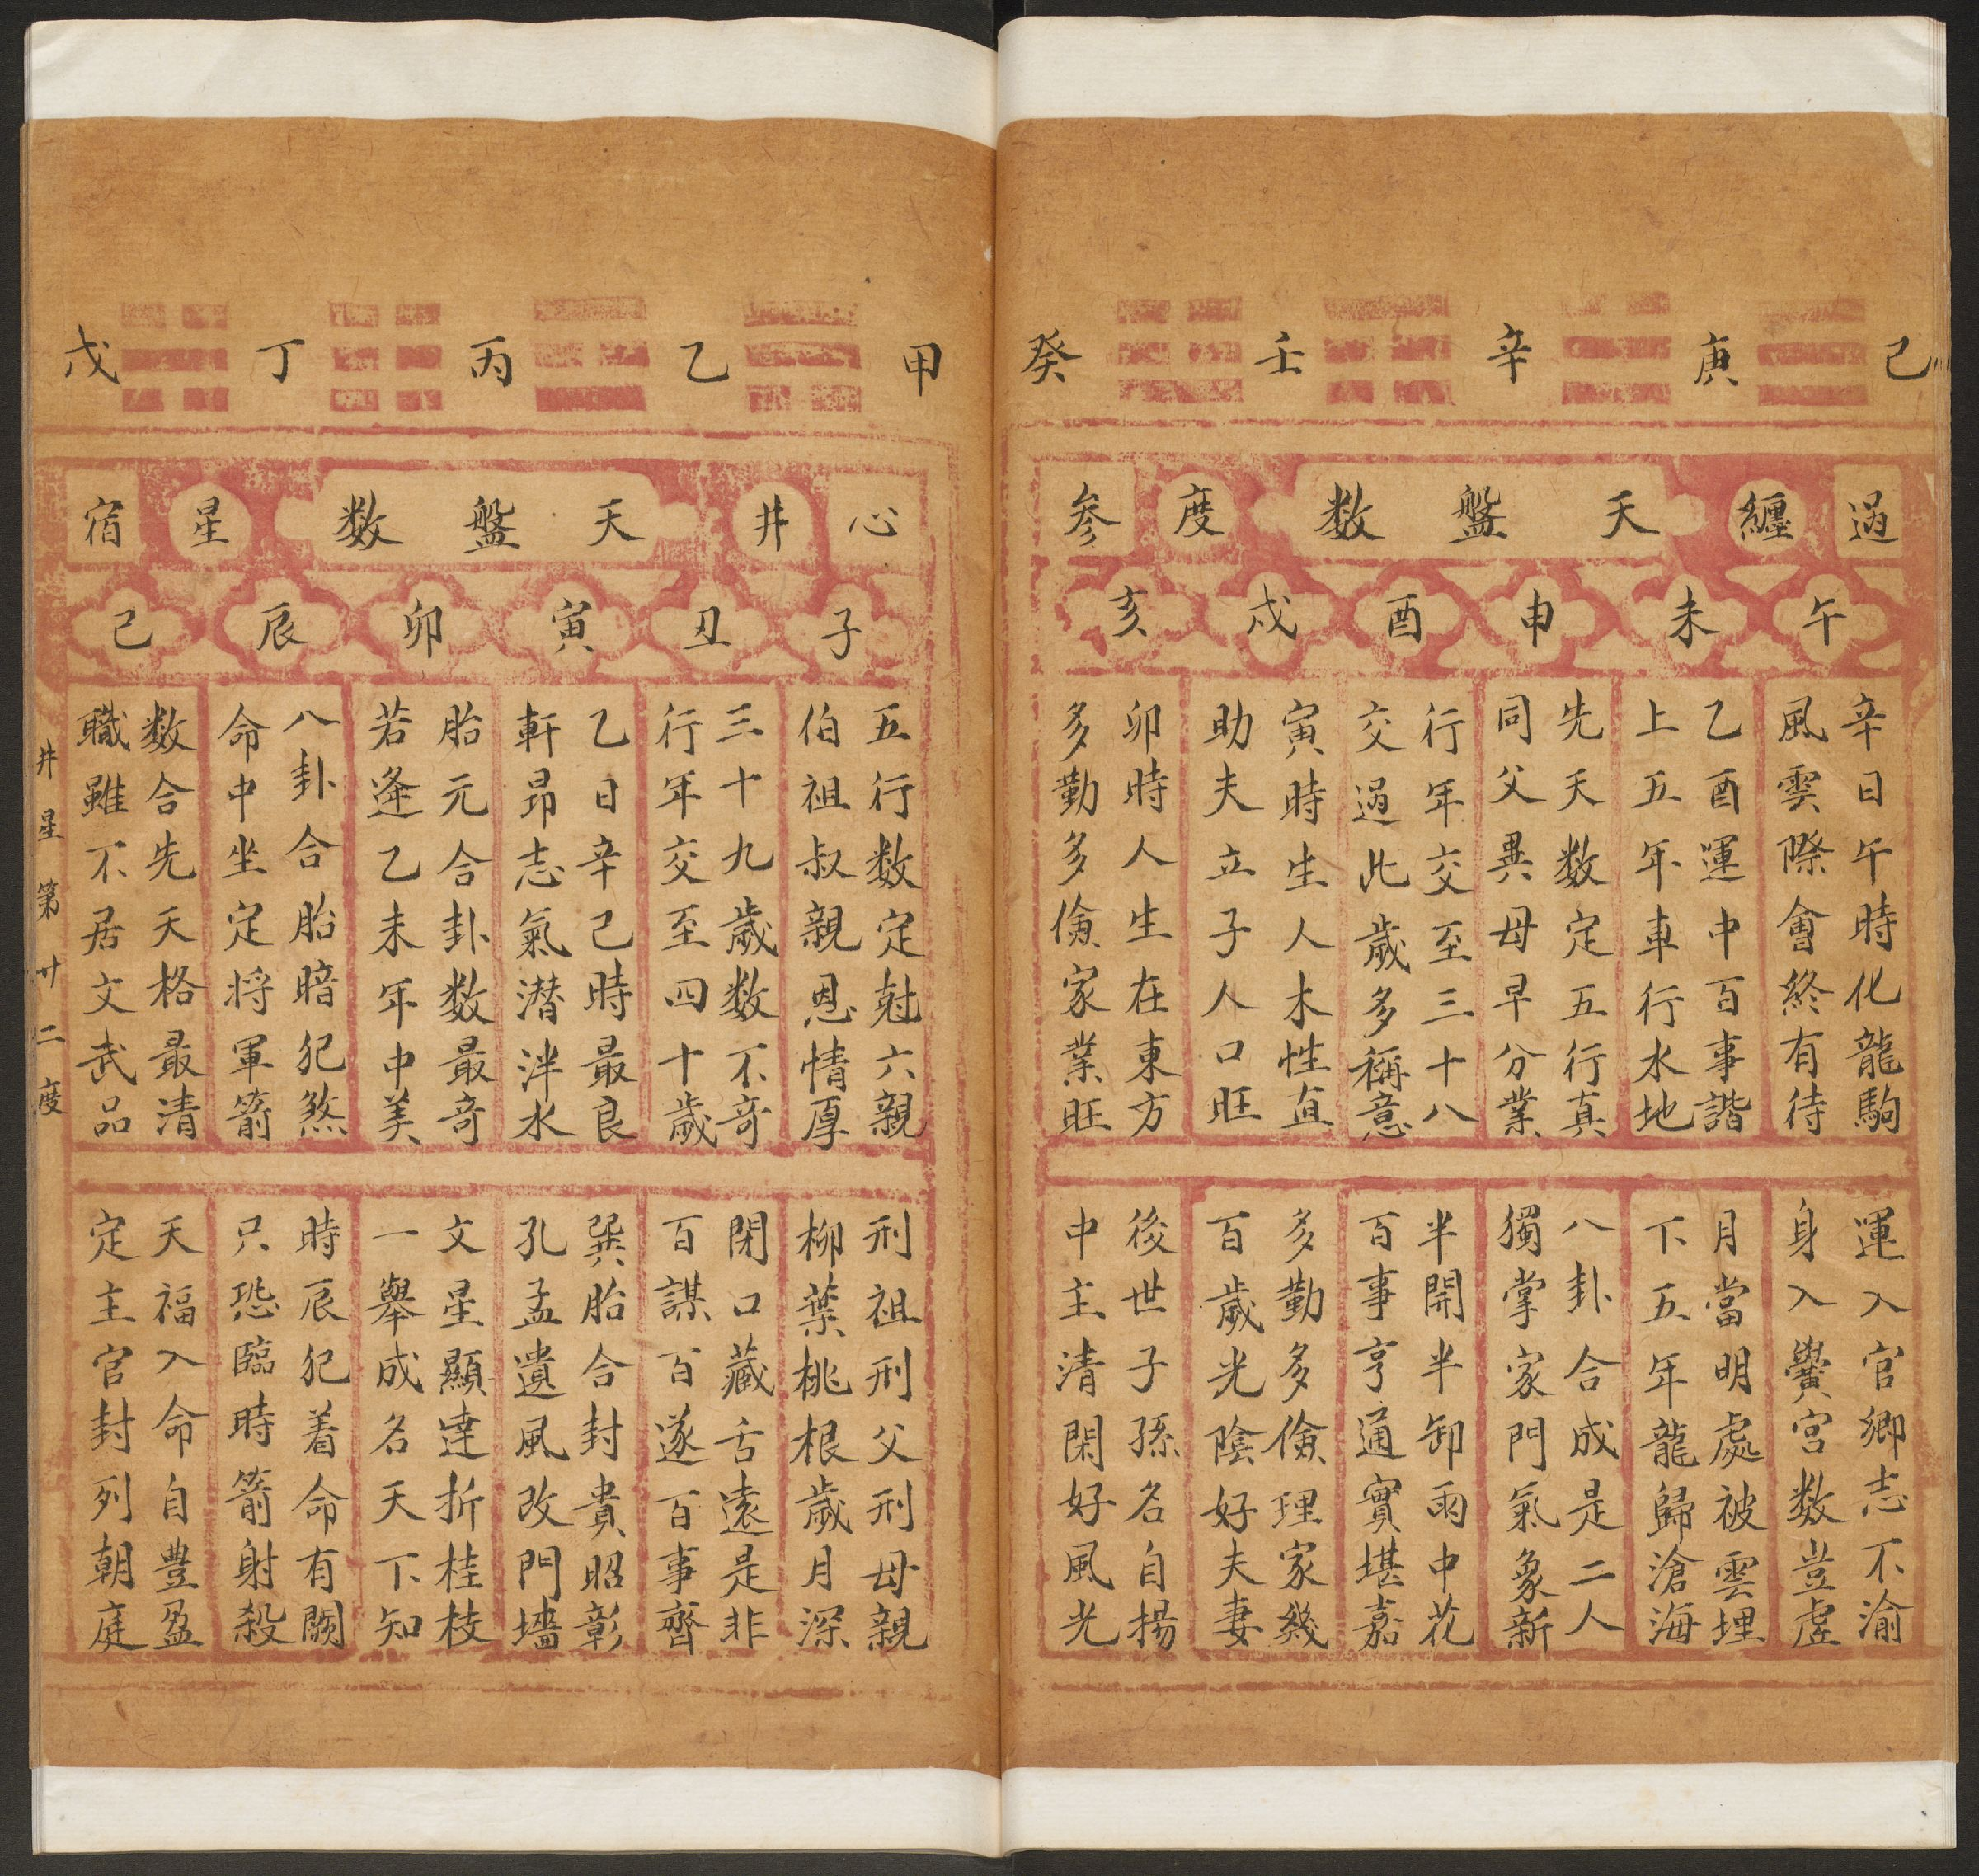 己 庚 辛 壬 癸
過 纏 天盤数 度 参
午 未 申 酉 戌 亥
辛日午時化龍駒
風雲際會終有待
乙酉運中百事諧
上五年車行水地
先天数定五行真
同父異母早分業
行年交至三十八
交過此歲多稱意
寅時生人木性直
助夫立子人口旺
卯時人生在東方
多勤多儉家業旺
運入官鄉志不渝
身入黌宮数豈虛
月當明處被雲埋
下五年龍歸滄海
八卦合成是二人
獨掌家門氣象新
半開半卸雨中花
百事亨通實堪嘉
多勤多儉理家幾
百歲光陰好夫妻
後世子孫名自揚
中主清閑好風光
甲 乙 丙 丁 戊
心 井 天盤数 星 宿
子 丑 寅 卯 辰 巳
五行数定尅六親
伯祖叔親恩情厚
三十九歲数不奇
行年交至四十歲
乙日辛己時最良
軒昂志氣潜泮水
胎元合卦数最奇
若逢乙未年中美
八卦合胎暗犯煞
命中坐定将軍箭
数合先天格最清
職雖不居文武品
刑祖刑父刑母親
柳葉桃根歲月深
閉口藏舌遠是非
百謀百遂百事齊
巽胎合封貴昭彰
孔孟遺風改門墻
文星顯達折桂枝
一舉成名天下知
時辰犯着命有闕
只恐臨時箭射殺
天福入命自豊盈
定主官封列朝庭
井星第廿二度